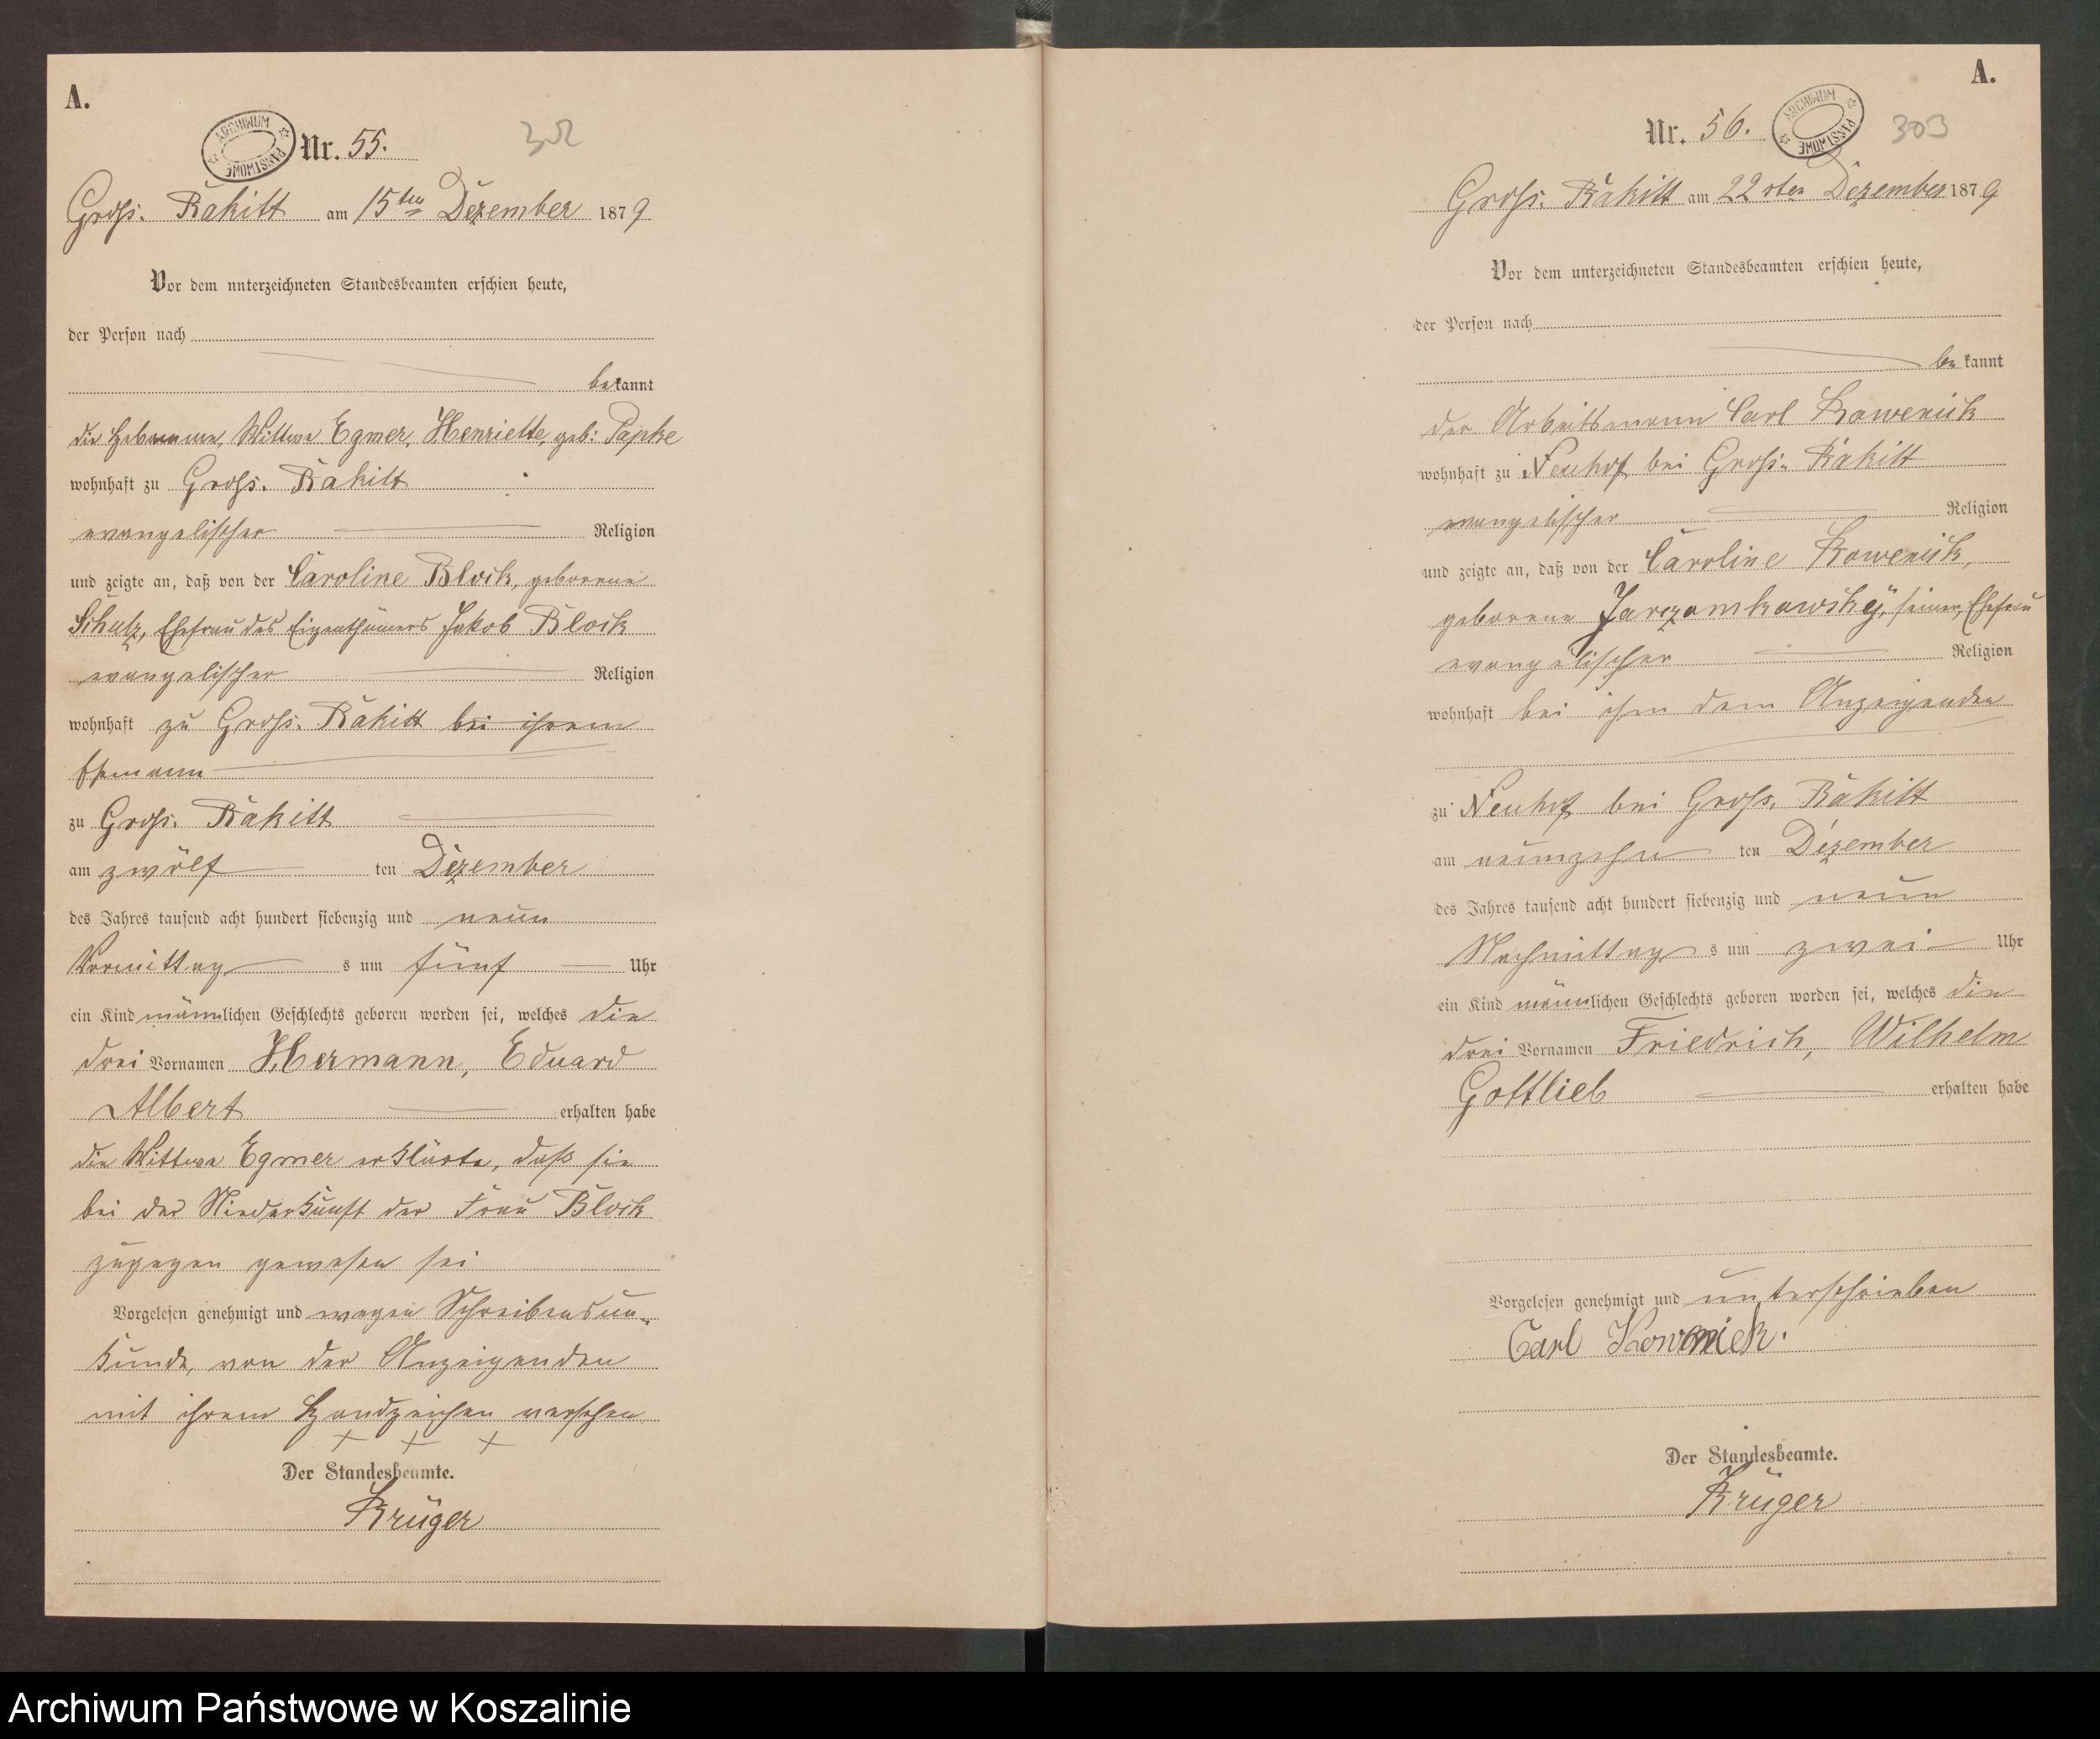 A.
ARCHIWUM PAŃSTWOWE
Nr. 55.
302
Groß. Rakitt am 15ten Dezember 1879
Vor dem unterzeichneten Standesbeamten erschien heute,
der Person nach
bekannt
die Hebamme, Wittwe Egmer, Henriette, geb: Papke
wohnhaft zu Groß. Rakitt
evangelischer Religion
und zeigte an, daß von der Caroline Block, geborene
Schulz, Ehefrau des Eigenthümers Jakob Block
evangelischer Religion
wohnhaft zu Groß. Rakitt bei ihrem
Ehemann
zu Groß. Rakitt
am zwölf ten Dezember
des Jahres tausend acht hundert siebenzig und neun
Vormittag s um fünf Uhr
ein Kind männlichen Geschlechts geboren worden sei, welches die
drei Vornamen Hermann, Eduard
Albert erhalten habe
die Wittwe Egmer erklärte, daß sie
bei der Niederkunft der Frau Block
zugegen gewesen sei
Vorgelesen genehmigt und wegen Schreibensun-
kunde, von der Anzeigenden
mit ihrem Handzeichen versehen
+ + +
Der Standesbeamte.
Krüger
A.
Nr. 56.
ARCHIWUM PAŃSTWOWE
303
Groß. Rakitt am 22sten Dezember 1879
Vor dem unterzeichneten Standesbeamten erschien heute,
der Person nach
bekannt
der Arbeitsmann Carl Kowenick
wohnhaft zu Neuhof bei Groß. Rakitt
evangelischer Religion
und zeigte an, daß von der Caroline Kowenick,
geborene Jarczomkawsky, seiner Ehefrau
evangelischer Religion
wohnhaft bei ihm dem Anzeigenden
zu Neuhof bei Groß. Rakitt
am neunzehn ten Dezember
des Jahres tausend acht hundert siebenzig und neun
Nachmittag s um zwei Uhr
ein Kind männlichen Geschlechts geboren worden sei, welches die
drei Vornamen Friedrich, Wilhelm
Gottlieb erhalten habe
Vorgelesen genehmigt und unterschrieben
Carl Kowenick.
Der Standesbeamte.
Krüger
Archiwum Państwowe w Koszalinie